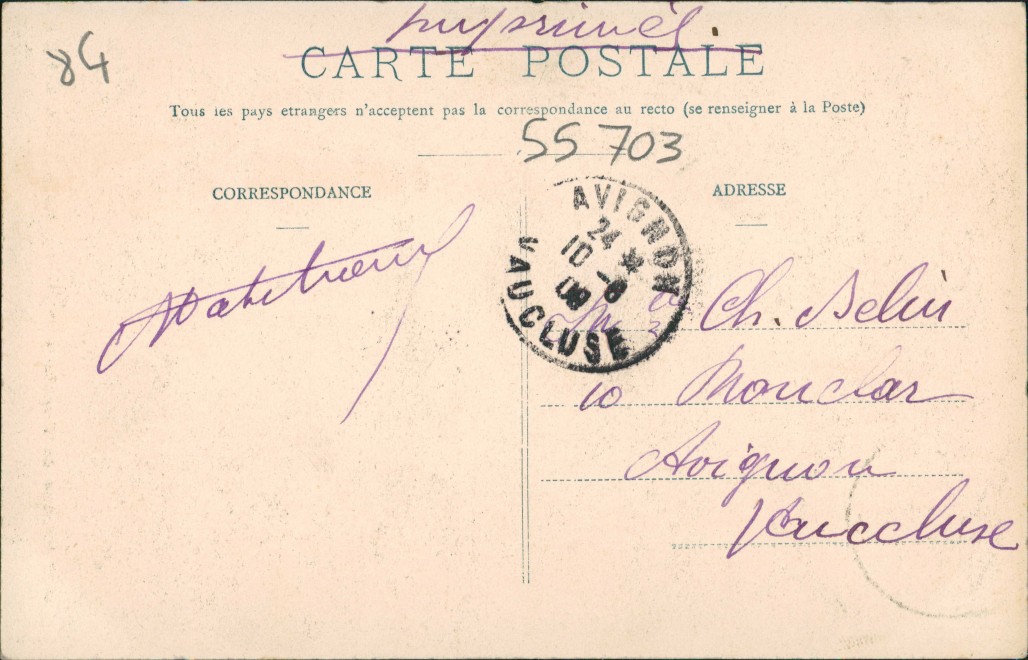 imprimés.
84
CARTE POSTALE
Tous les pays etrangers n'acceptent pas la correspondance au recto (se renseigner à la Poste)
55 703
CORRESPONDANCE
ADRESSE
AVIGNON
24 *
10 -6
08
VAUCLUSE
Ch. Belin
10 Monclar
Avignon
Vaucluse